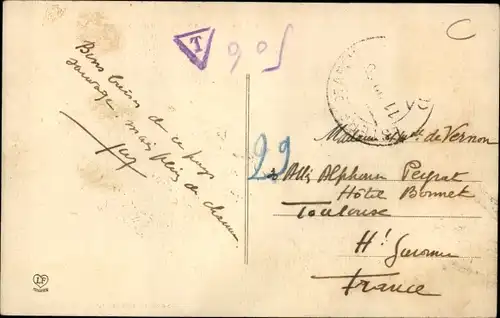 T
C
Bons baisers de ce pays
sauvage. mais plein de charme
29
Madame de Vernon
Allées Alphonse Peyrat
Hôtel Bonnet
Toulouse
Hte Garonne
France